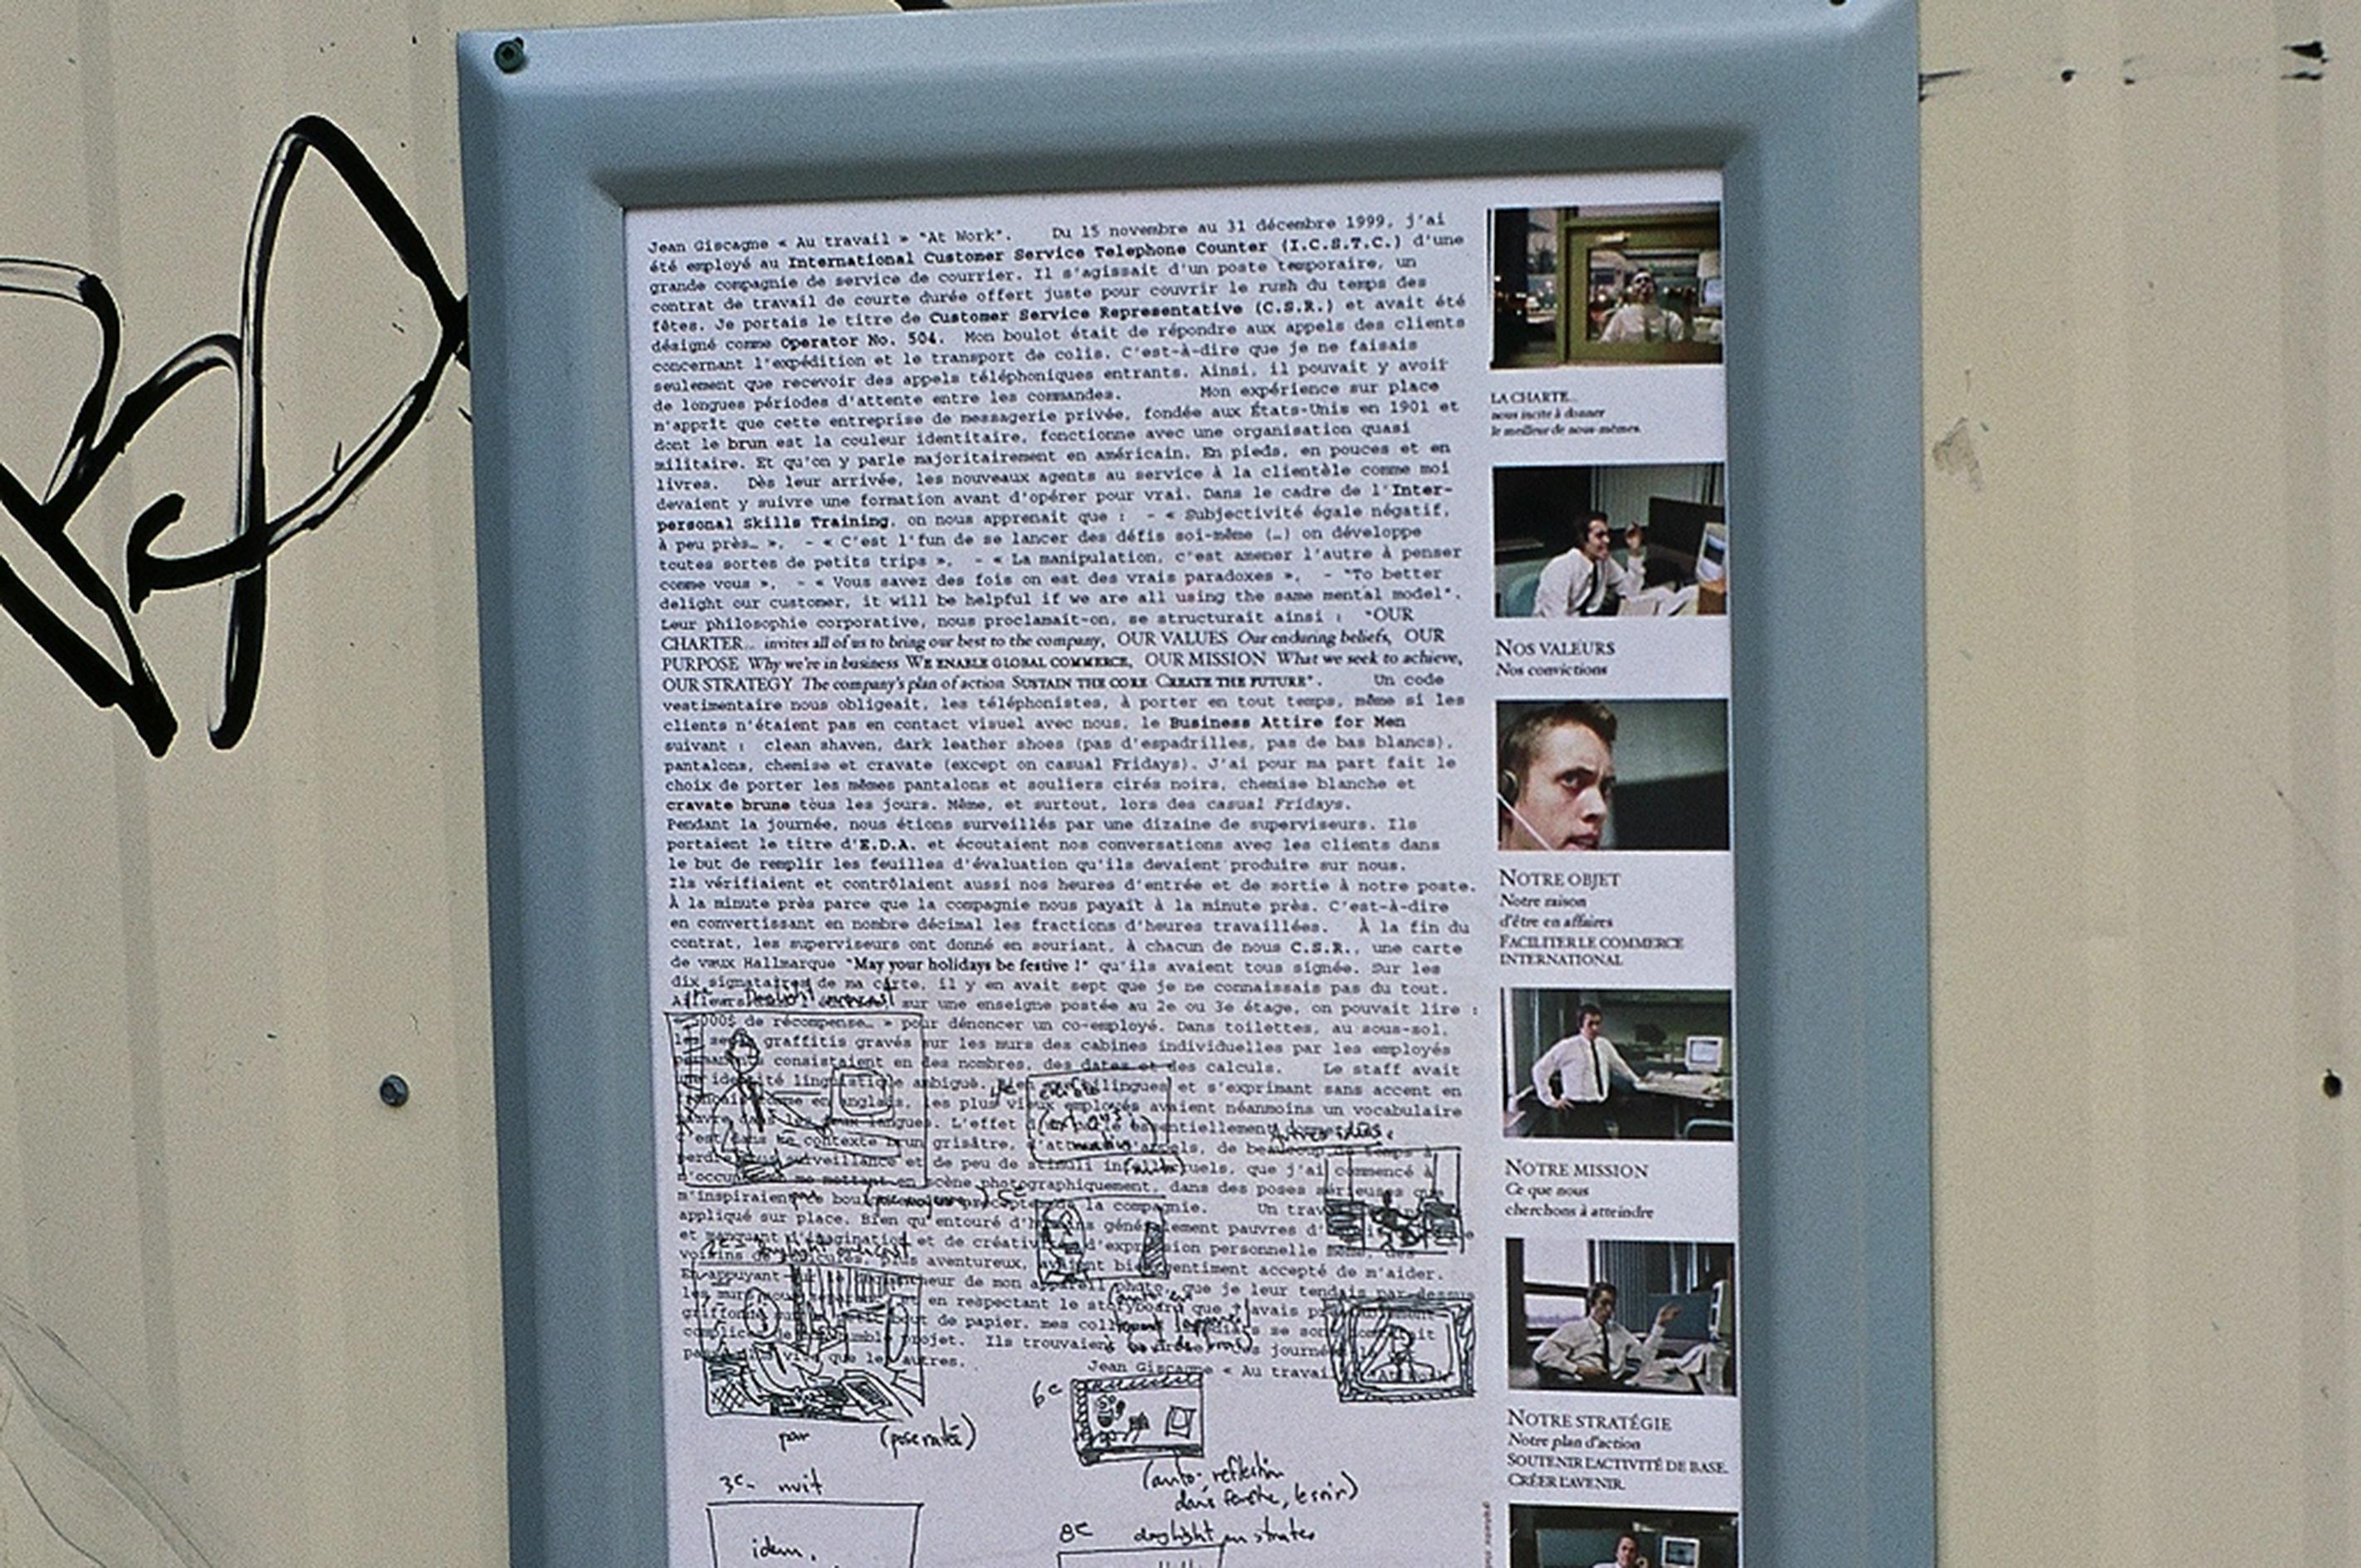 Jean Giscagne « Au travail » "At Work". Du 15 novembre au 31 décembre 1999, j'ai
été employé au International Customer Service Telephone Counter (I.C.S.T.C.) d'une
grande compagnie de service de courrier. Il s'agissait d'un poste temporaire, un
contrat de travail de courte durée offert juste pour couvrir le rush du temps des
fêtes. Je portais le titre de Customer Service Representative (C.S.R.) et avait été
désigné comme Operator No. 504. Mon boulot était de répondre aux appels des clients
concernant l'expédition et le transport de colis. C'est-à-dire que je ne faisais
seulement que recevoir des appels téléphoniques entrants. Ainsi, il pouvait y avoir
de longues périodes d'attente entre les commandes. Mon expérience sur place
m'apprît que cette entreprise de messagerie privée, fondée aux États-Unis en 1901 et
dont le brun est la couleur identitaire, fonctionne avec une organisation quasi
militaire. Et qu'on y parle majoritairement en américain. En pieds, en pouces et en
livres. Dès leur arrivée, les nouveaux agents au service à la clientèle comme moi
devaient y suivre une formation avant d'opérer pour vrai. Dans le cadre de l'Inter-
personal Skills Training, on nous apprenait que : - « Subjectivité égale négatif,
à peu près… », - « C'est l'fun de se lancer des défis soi-même (…) on développe
toutes sortes de petits trips », - « La manipulation, c'est amener l'autre à penser
comme vous », - « Vous savez des fois on est des vrais paradoxes », - "To better
delight our customer, it will be helpful if we are all using the same mental model".
Leur philosophie corporative, nous proclamait-on, se structurait ainsi : "OUR
CHARTER... invites all of us to bring our best to the company, OUR VALUES Our enduring beliefs, OUR
PURPOSE Why we're in business WE ENABLE GLOBAL COMMERCE, OUR MISSION What we seek to achieve,
OUR STRATEGY The company's plan of action SUSTAIN THE CORE CREATE THE FUTURE". Un code
vestimentaire nous obligeait, les téléphonistes, à porter en tout temps, même si les
clients n'étaient pas en contact visuel avec nous, le Business Attire for Men
suivant : clean shaven, dark leather shoes (pas d'espadrilles, pas de bas blancs),
pantalons, chemise et cravate (except on casual Fridays). J'ai pour ma part fait le
choix de porter les mêmes pantalons et souliers cirés noirs, chemise blanche et
cravate brune tous les jours. Même, et surtout, lors des casual Fridays.
Pendant la journée, nous étions surveillés par une dizaine de superviseurs. Ils
portaient le titre d'E.D.A. et écoutaient nos conversations avec les clients dans
le but de remplir les feuilles d'évaluation qu'ils devaient produire sur nous.
Ils vérifiaient et contrôlaient aussi nos heures d'entrée et de sortie à notre poste.
À la minute près parce que la compagnie nous payait à la minute près. C'est-à-dire
en convertissant en nombre décimal les fractions d'heures travaillées. À la fin du
contrat, les superviseurs ont donné en souriant, à chacun de nous C.S.R., une carte
de vœux Hallmarque "May your holidays be festive !" qu'ils avaient tous signée. Sur les
dix signataires de ma carte, il y en avait sept que je ne connaissais pas du tout.
Ailleurs sur une enseigne postée au 2e ou 3e étage, on pouvait lire :
000$ de récompense… » pour dénoncer un co-employé. Dans toilettes, au sous-sol,
les graffitis gravés sur les murs des cabines individuelles par les employés
consistaient en des nombres, des dates et des calculs. Le staff avait
identité linguistique ambiguë. Bien que bilingues et s'exprimant sans accent en
comme en anglais, les plus vieux employés avaient néanmoins un vocabulaire
langues. L'effet essentiellement
c'est dans ce contexte brun grisâtre, d'attente d'appels, de beaucoup de temps à
perdre, surveillance et de peu de stimuli que j'ai commencé à
m'occuper me mettant en scène photographiquement, dans des poses sérieuses que
m'inspiraient préceptes de la compagnie. Un
appliqué sur place. Bien qu'entouré d'humains généralement pauvres d'
et manquant d'imagination et de créativité d'expression personnelle même, des
voisins de cubicules, plus aventureux, avaient bien gentiment accepté de m'aider.
En appuyant sur le déclencheur de mon appareil photo que je leur tendais par-dessus
les murs en respectant le storyboard que j'avais
griffonné bout de papier, mes
complices de projet. Ils trouvaient journées
que les autres.
Jean Giscagne « Au travail
par (pose ratée)
3e - nuit
idem.
5e
6e
(auto-reflection
dans fenêtre, le soir)
8e daylight en strates
Autres idées :
LA CHARTE...
nous incite à donner
le meilleur de nous-mêmes.
NOS VALEURS
Nos convictions
NOTRE OBJET
Notre raison
d'être en affaires
FACILITER LE COMMERCE
INTERNATIONAL
NOTRE MISSION
Ce que nous
cherchons à atteindre
NOTRE STRATÉGIE
Notre plan d'action
SOUTENIR L'ACTIVITÉ DE BASE.
CRÉER L'AVENIR.